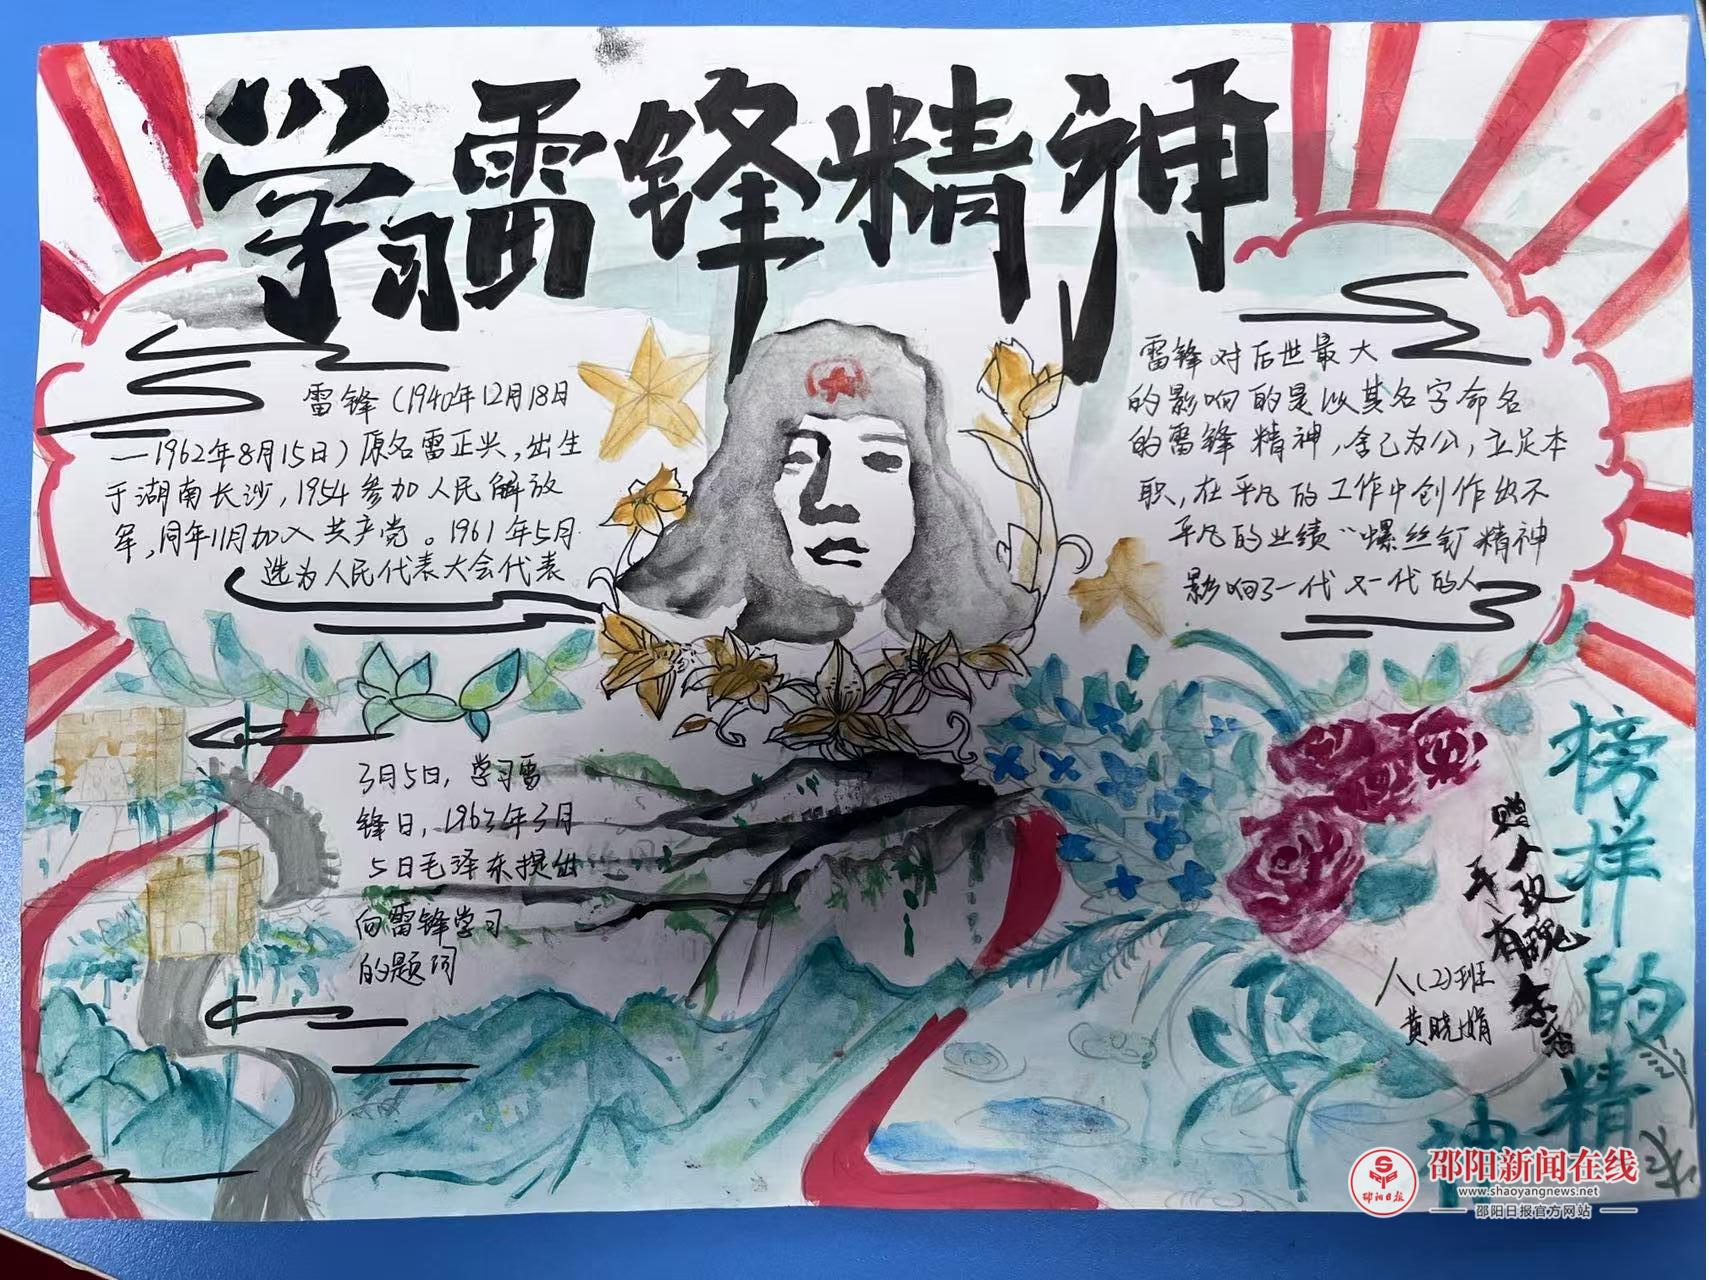 学习雷锋精神
雷锋（1940年12月18日
—1962年8月15日）原名雷正兴，出生
于湖南长沙，1954参加人民解放
军，同年11月加入共产党。1961年5月
选为人民代表大会代表
雷锋对后世最大
的影响的是以其名字命名
的雷锋精神，舍己为公，立足本
职，在平凡的工作中创作出不
平凡的业绩“螺丝钉精神
影响了一代又一代的人
3月5日，学习雷
锋日，1963年3月
5日毛泽东提出
向雷锋学习
的题词
榜样的精
神
赠人玫
手有余
八(2)班
黄晓娟
邵阳新闻在线
www.shaoyangnews.net
邵阳日报官方网站
邵阳日报